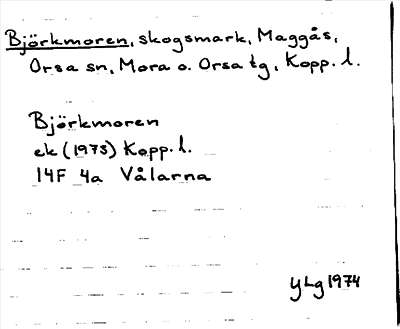 Björkmoren, skogsmark, Maggås,
Orsa sn, Mora o. Orsa tg, Kopp. l.
Björkmoren
ek (1973) Kopp. l.
14F 4a Vålarna
YLg 1974